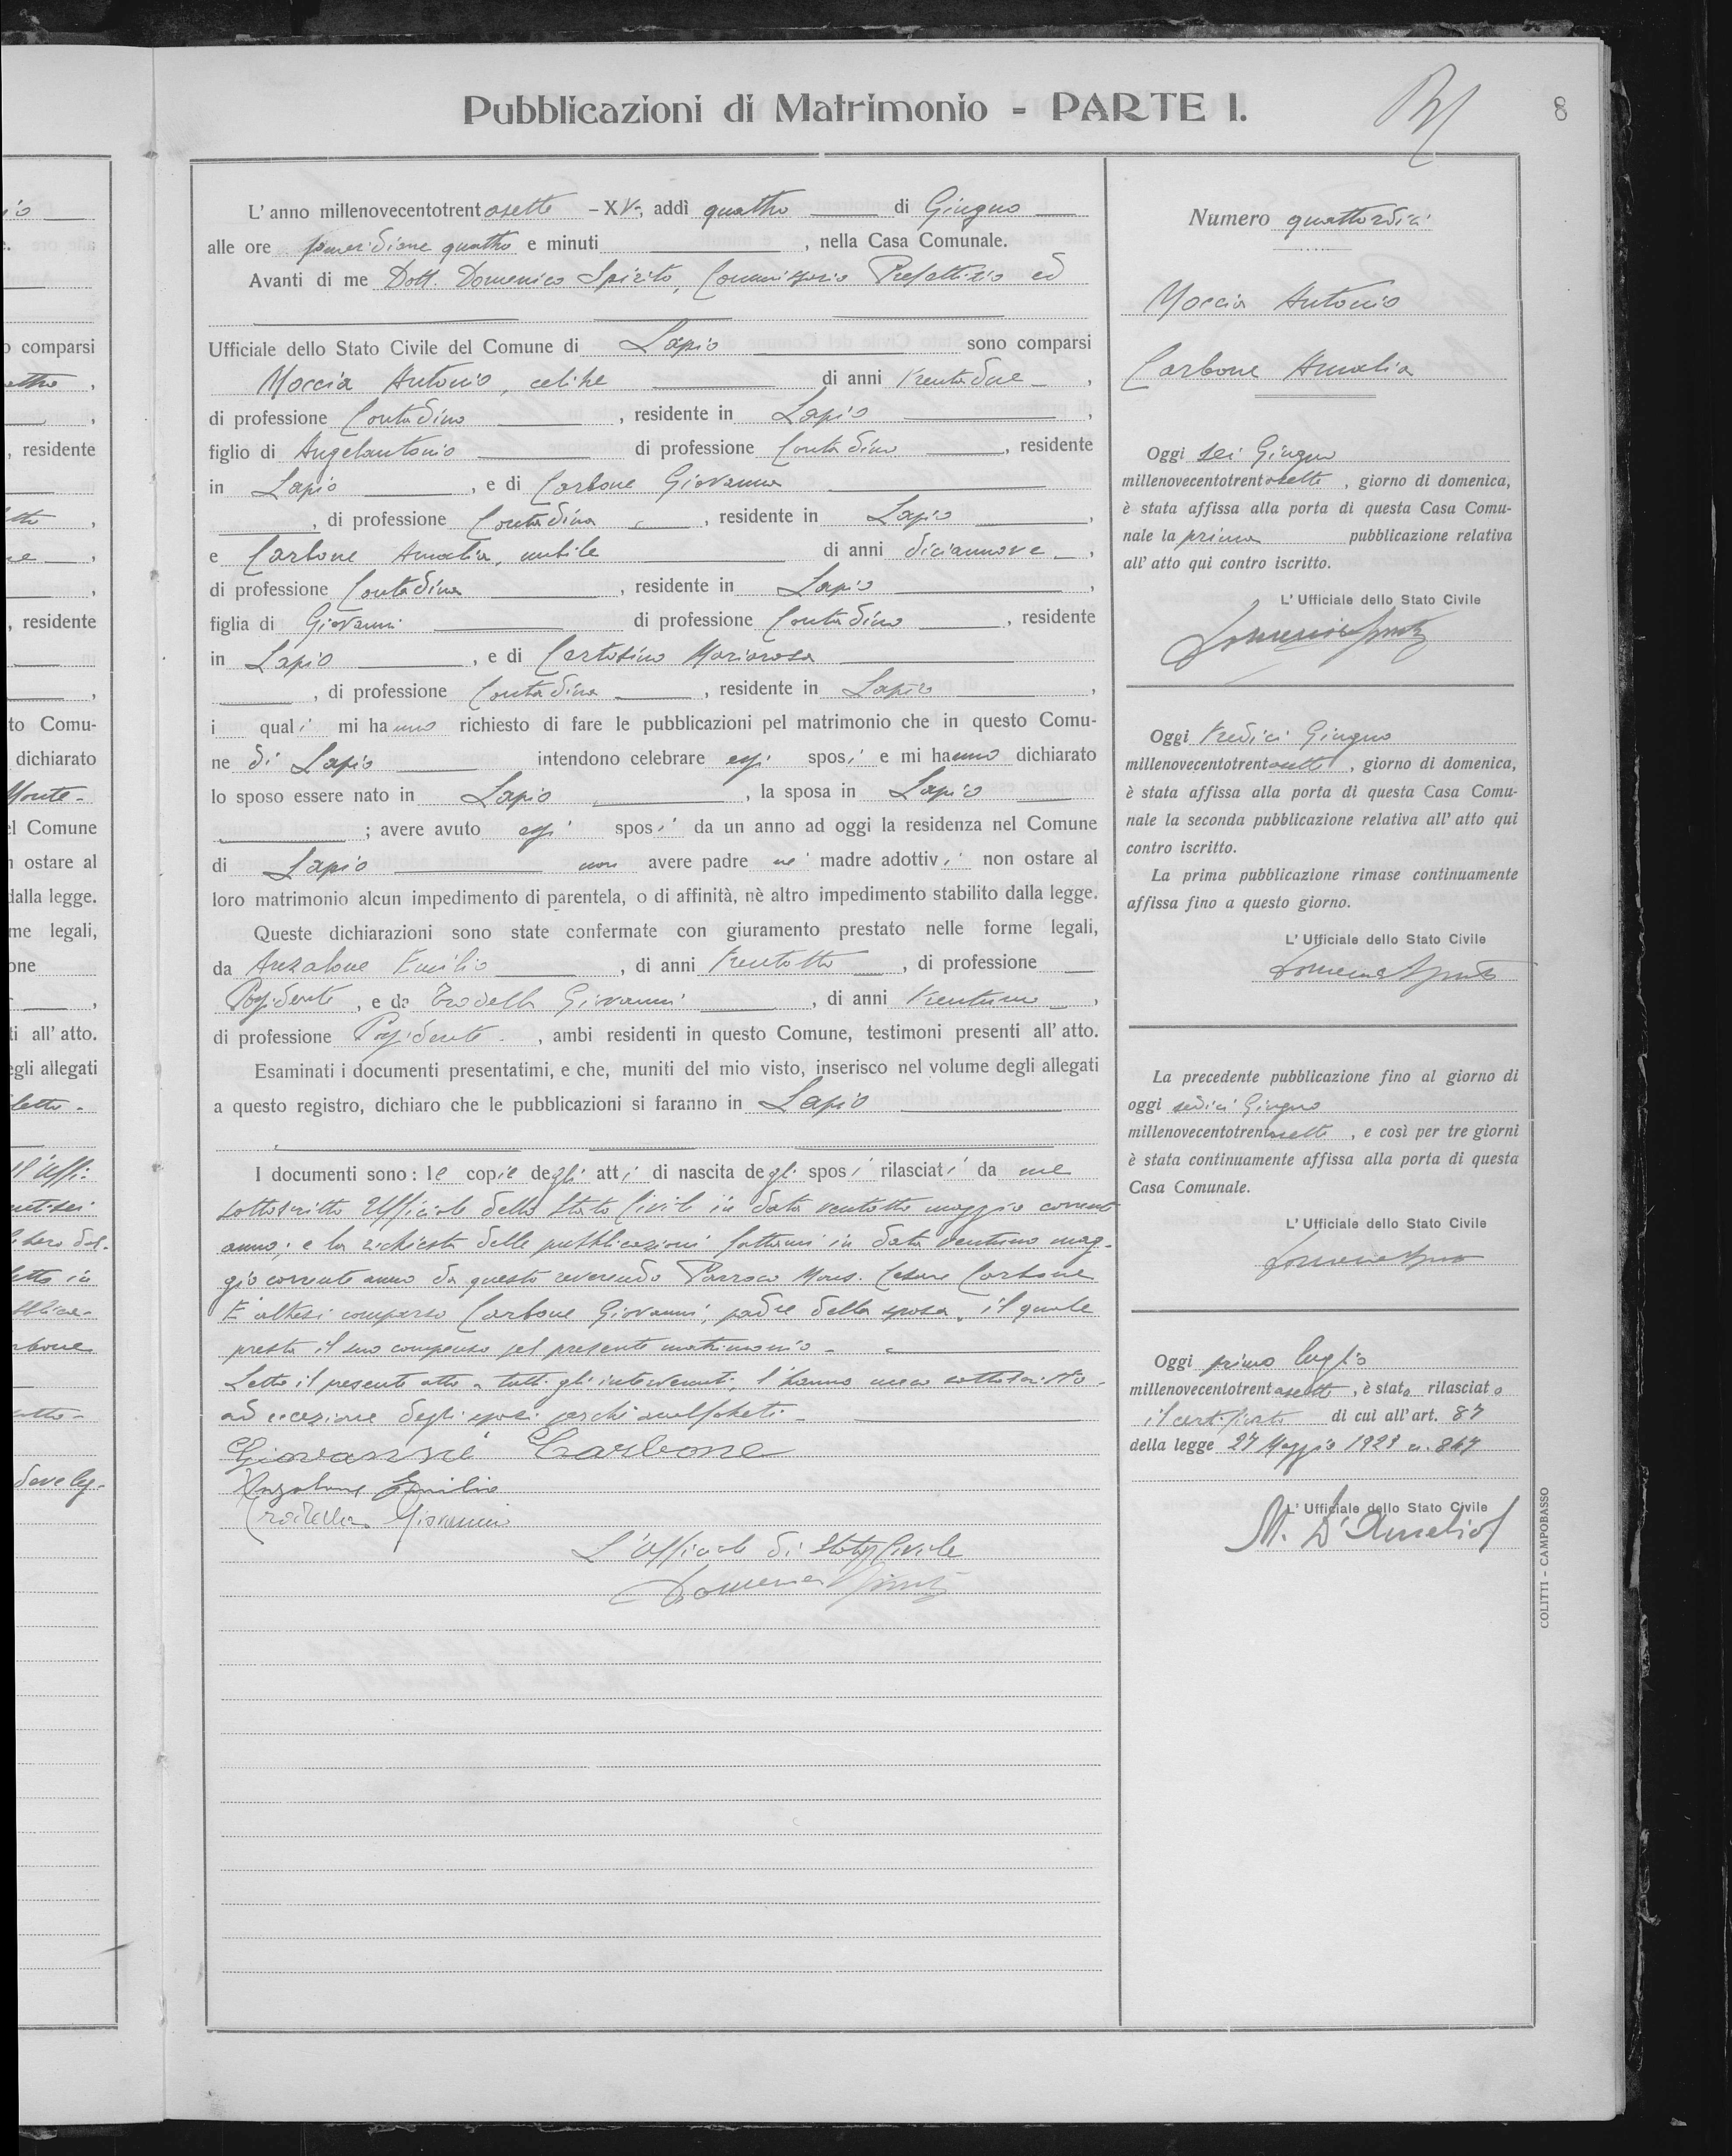 Pubblicazioni di Matrimonio - PARTE I.
8
L'anno millenovecentotrentasette - XV-, addì quattro di Giugno
alle ore pomeridiane quattro e minuti , nella Casa Comunale.
Avanti di me Dott. Domenico Spirito, Commissario Prefettizio ed
Ufficiale dello Stato Civile del Comune di Lapio sono comparsi
Moccia Antonio, celibe di anni trentadue ,
di professione Contadino , residente in Lapio ,
figlio di Angelantonio di professione Contadino , residente
in Lapio , e di Carbone Giovanna
, di professione Contadina , residente in Lapio ,
e Carbone Amalia, nubile di anni diciannove ,
di professione Contadina , residente in Lapio ,
figlia di Giovanni di professione Contadino , residente
in Lapio , e di Certosino Mariarosa
, di professione Contadina , residente in Lapio ,
i quali mi hanno richiesto di fare le pubblicazioni pel matrimonio che in questo Comu-
ne di Lapio intendono celebrare essi sposi e mi hanno dichiarato
lo sposo essere nato in Lapio , la sposa in Lapio
; avere avuto essi sposi da un anno ad oggi la residenza nel Comune
di Lapio non avere padre nè madre adottivi non ostare al
loro matrimonio alcun impedimento di parentela, o di affinità, nè altro impedimento stabilito dalla legge.
Queste dichiarazioni sono state confermate con giuramento prestato nelle forme legali,
da Anzalone Emilio , di anni trentotto , di professione
Possidente , e da Trodella Giovanni , di anni trentuno ,
di professione Possidente , ambi residenti in questo Comune, testimoni presenti all'atto.
Esaminati i documenti presentatimi, e che, muniti del mio visto, inserisco nel volume degli allegati
a questo registro, dichiaro che le pubblicazioni si faranno in Lapio
I documenti sono: le copie degli atti di nascita degli sposi rilasciati da me
sottoscritto Ufficiale dello Stato Civile in data ventotto maggio corrente
anno; e la richiesta delle pubblicazioni fattami in data ventuno mag-
gio corrente anno da questo reverendo Parroco Mons. Cesare Carbone
E' altresì comparso Carbone Giovanni, padre della sposa, il quale
presta il suo compenso pel presente matrimonio -
Letto il presente atto a tutti gli intervenuti, l'hanno meco sottoscritto
ad eccezione degli sposi perchè analfabeti -
Giovanni Carbone
Anzalone Emilio
Trodella Giovanni
L'Ufficiale di Stato Civile
Domenico Spirito
Numero quattordici
Moccia Antonio
Carbone Amalia
Oggi sei Giugno
millenovecentotrentasette , giorno di domenica,
è stata affissa alla porta di questa Casa Comu-
nale la prima pubblicazione relativa
all'atto qui contro iscritto.
L'Ufficiale dello Stato Civile
Domenico Spirito
Oggi tredici Giugno
millenovecentotrentasette , giorno di domenica,
è stata affissa alla porta di questa Casa Comu-
nale la seconda pubblicazione relativa all'atto qui
contro iscritto.
La prima pubblicazione rimase continuamente
affissa fino a questo giorno.
L'Ufficiale dello Stato Civile
Domenico Spirito
La precedente pubblicazione fino al giorno di
oggi sedici Giugno
millenovecentotrentasette , e così per tre giorni
è stata continuamente affissa alla porta di questa
Casa Comunale.
L'Ufficiale dello Stato Civile
Domenico Spirito
Oggi primo luglio
millenovecentotrentasette , è stato rilasciato
il certificato di cui all'art. 87
della legge 27 Maggio 1929 n. 847
L'Ufficiale dello Stato Civile
M. D'Amelio
COLITTI - CAMPOBASSO